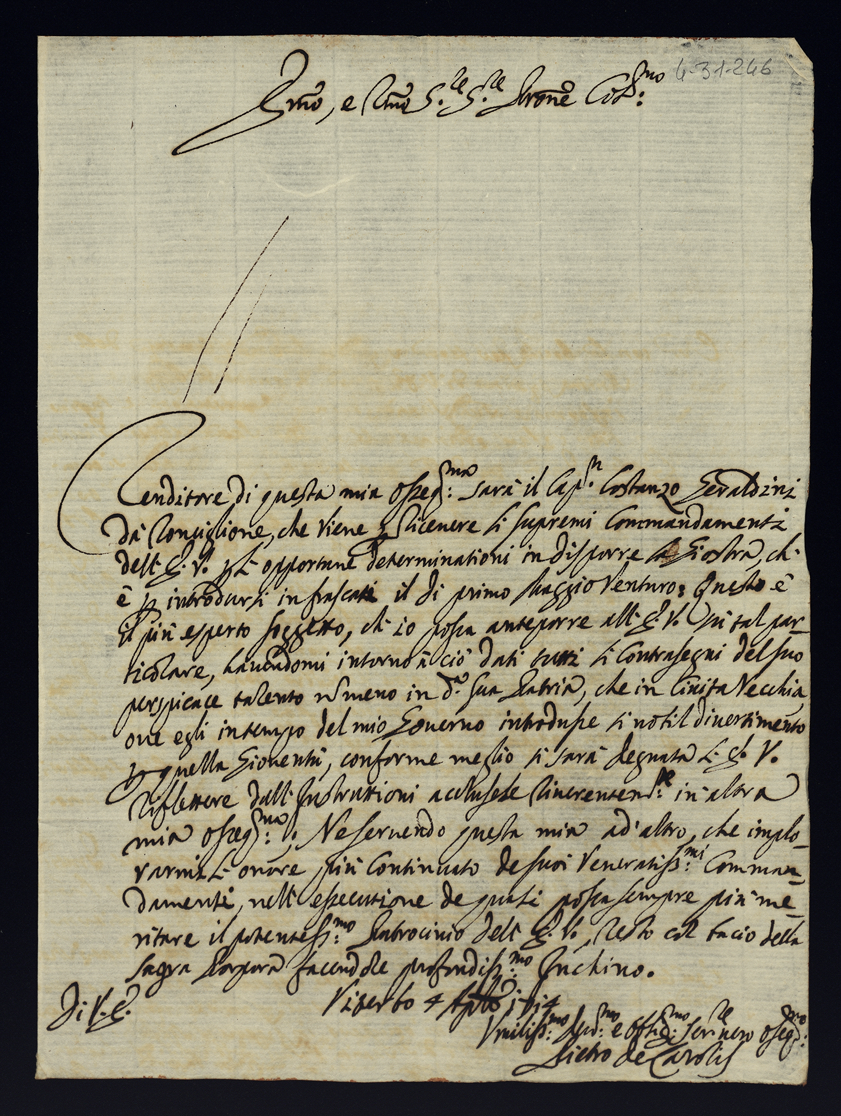 4-31-246
Em̃o, e R̃mo S.re S.re Prone Col.mo
Renditore di questa mia osseq.ma sarà il Cap.n Costanzo Geraldini
da Ronciglione, che viene p ricevere li supremi Commandamenti
dell'E. V. p l'opportune determinationi in disporre la Giostra, ch'
è p introdursi in frascati il di primo Maggio Venturo; Questo è
il più esperto soggetto, ch'io possa anteporre all'E. V. in tal par-
ticolare, havendomi intorno à ciò dati tutti li Contrasegni del suo
perspicace talento nõ meno in d.a sua Patria, che in Civita Vecchia
ove egli in tempo del mio Governo introdusse simil divertimento
p quella Gioventù, conforme meglio si sarà degnata l'E. V.
riflettere dall'Instruttioni accluseLe riverentem.te in altra
mia osseq.ma; Ne servendo questa mia ad'altro, che implo-
rarmi l'onore più Continuato de suoi Veneratiss.mi Comman-
damenti, nell'essecutione de quali possa sempre più me-
ritare il potentiss.mo Patrocinio dell'E. V., resto col bacio della
Sagra Porpora facendole profondiss.mo Inchino.
Di V. E.
Viterbo 4 Aple
Umiliss.mo e oblig.mo Ser.re vero osseq.mo
Pietro de Carolis